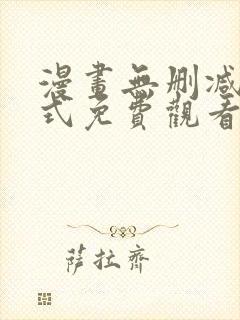 漫畫無刪减
式免費觀看
薩拉齊